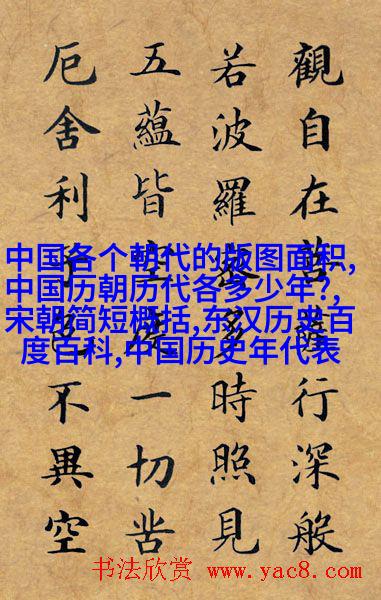 觀自在菩薩行深般
若波羅蜜多時照見
五蘊皆空度一切苦
厄舍利子色不異空
中国各个朝代的版图面积,
中国历朝历代各多少年?,
宋朝简短概括,东汉历史百
度百科,中国历史年代表
书法欣赏 www.yac8.com